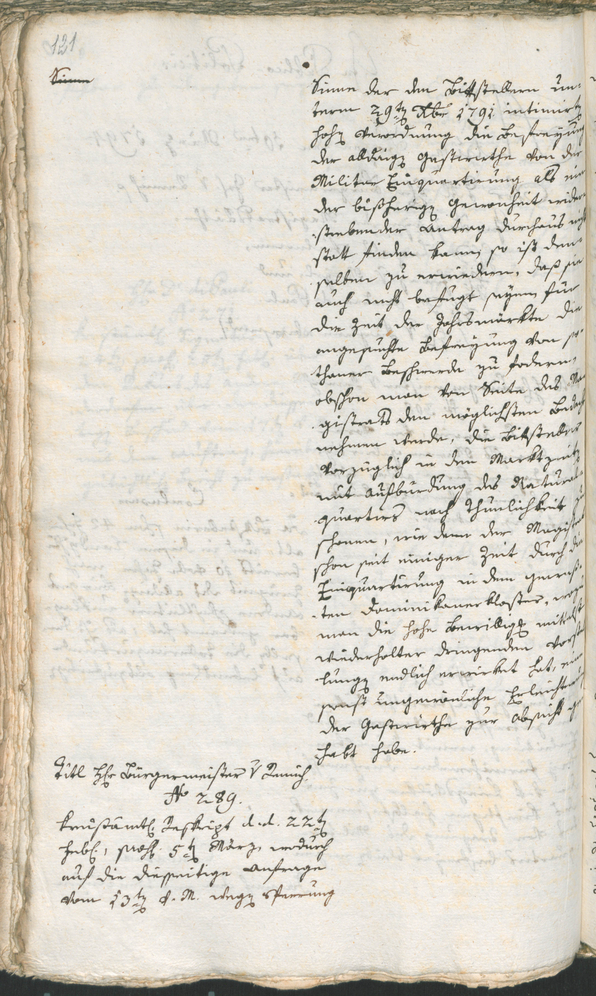 121
Sinne
Sinne der den Bittstellern un-
term 29t Xber 1791 intimirt
hohe Verordnung die Befreyung
der allhies. Gastwirthe von der
Militar Einquartierung als ein
der bißherigen Gewonheit wider-
strebender Antrag durchaus nicht
statt finden kann, so ist den-
selben zu erwiedern, daß sie
auch nicht befugt seyen für
die Zeit der Jahrmärkte die
angesuchte Befreyung von so-
thaner Beschwerde zu fodern,
obschon man von Seite des Ma-
gistrats den möglichsten Bedacht
nehmen werde, die Bittsteller
vorzüglich in den Marktzeiten
mit Aufbürdung des Natural-
quartirs nach Thunlichkeit zu
schonen, wie dann der Magistrat
schon seit einiger Zeit durch die
Einquartirung in dem geweß-
ten Dominikanerkloster, wozu
man die hohe Bewilligg mittelst
wiederholter dringenden Vorstel-
lungen endlich erwirket hat, eine
sonst ungewönliche Erleichterung
der Gastwirthe zur Absicht ge-
habt habe.
Titl Hr Bürgermeister v
No 289.
Kreisämtl. Reskript d. d. 22t
Febr., praes. 5t März, wodurch
auf die diesseitige Anfrage
vom 13t v. M. wegen Sperrung